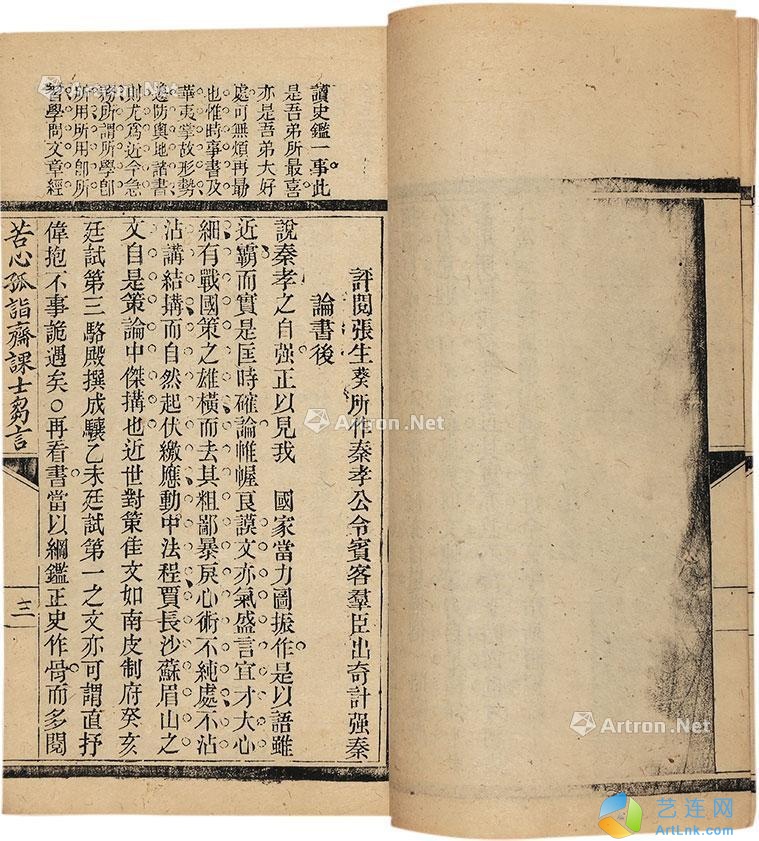 讀史鑑一事此
是吾弟所最喜
亦是吾弟大好
處可無煩再勗
也惟時事書及
華夷掌故形勢
邊防輿地諸書
則尤爲近今急
務所謂所學卽
所用所用卽所
習學問文章經
評閱張生葵所作秦孝公令賓客羣臣出奇計强秦
論書後
說秦孝之自强正以見我 國家當力圖振作是以語雖
近霸而實是匡時確論帷幄良謨文亦氣盛言宜才大心
細有戰國策之雄橫而去其粗鄙暴戾心術不純處不沾
沾講結搆而自然起伏繳應動中法程賈長沙蘇眉山之
文自是策論中傑搆也近世對策佳文如南皮制府癸亥
廷試第三駱殿撰成驤乙未廷試第一之文亦可謂直抒
偉抱不事詭遇矣○再看書當以綱鑑正史作骨而多閱
苦心孤詣齋課士芻言
三
Artron.Net
Artron.Net
Artron.Net
艺连网
ArtLnk.com